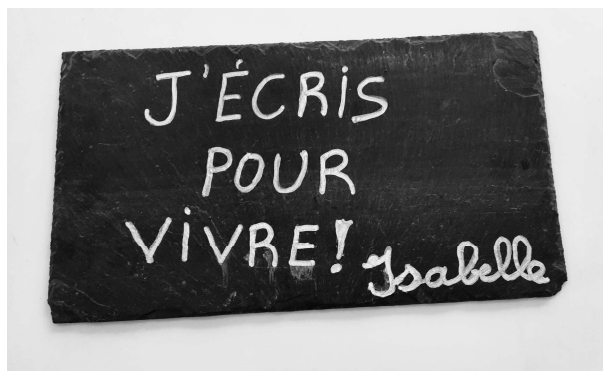 J'ÉCRiS
POUR
ViVRE!
Isabelle